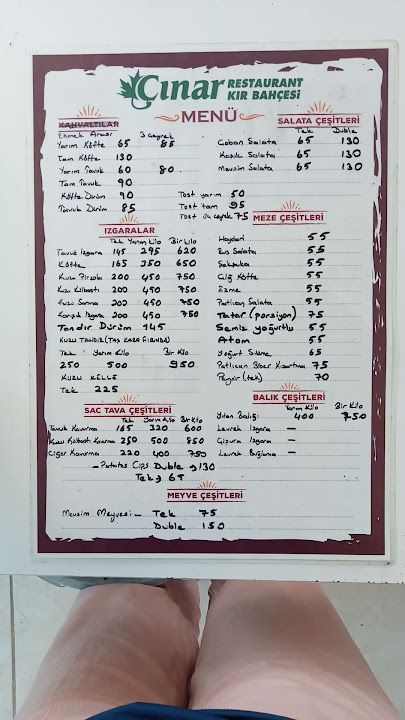 Çınar RESTAURANT
KIR BAHÇESİ
MENÜ
KAHVALTILAR
Ekmek Arası 3 Çeyrek
Yarım Köfte 65 85
Tam Köfte 130
Yarım Tavuk 60 80
Tam Tavuk 90
Köfte Dürüm 90
Tavuk Dürüm 85
Tost yarım 50
Tost tam 95
Tost üç çeyrek 75
SALATA ÇEŞİTLERİ
Tek Duble
Çoban Salata 65 130
Kaşık Salata 65 130
Mevsim Salata 65 130
IZGARALAR
Tek Yarım Kilo Bir Kilo
Tavuk Izgara 145 295 620
Köfte 165 350 650
Kuzu Pirzola 200 450 750
Kuzu Külbastı 200 450 750
Kuzu Sarma 200 450 750
Karışık Izgara 200 450 750
Tandır Dürüm 145
KUZU TANDIR (TAŞ KARA FIRINDA)
Tek Yarım Kilo Bir Kilo
250 500 950
KUZU KELLE
Tek 225
MEZE ÇEŞİTLERİ
Haydari 55
Rus Salata 55
Şakşuka 55
Çiğ Köfte 55
Ezme 55
Patlıcan Salata 55
Tatar (porsiyon) 75
Semiz yoğurtlu 55
Atom 55
Yoğurt Süzme 65
Patlıcan Biber Kızartma 75
Peynir (tek) 70
SAC TAVA ÇEŞİTLERİ
Tek Yarım Kilo Bir Kilo
Tavuk Kavurma 165 320 600
Kuzu Külbastı Kavurma 250 500 850
Ciğer Kavurma 220 400 750
Patates Cips Duble → 130
Tek → 65
BALIK ÇEŞİTLERİ
Yarım Kilo Bir Kilo
Yılan Balığı 400 750
Levrek Izgara —
Çipura Izgara —
Levrek Buğlama —
MEYVE ÇEŞİTLERİ
Mevsim Meyvesi — Tek 75
Duble 150